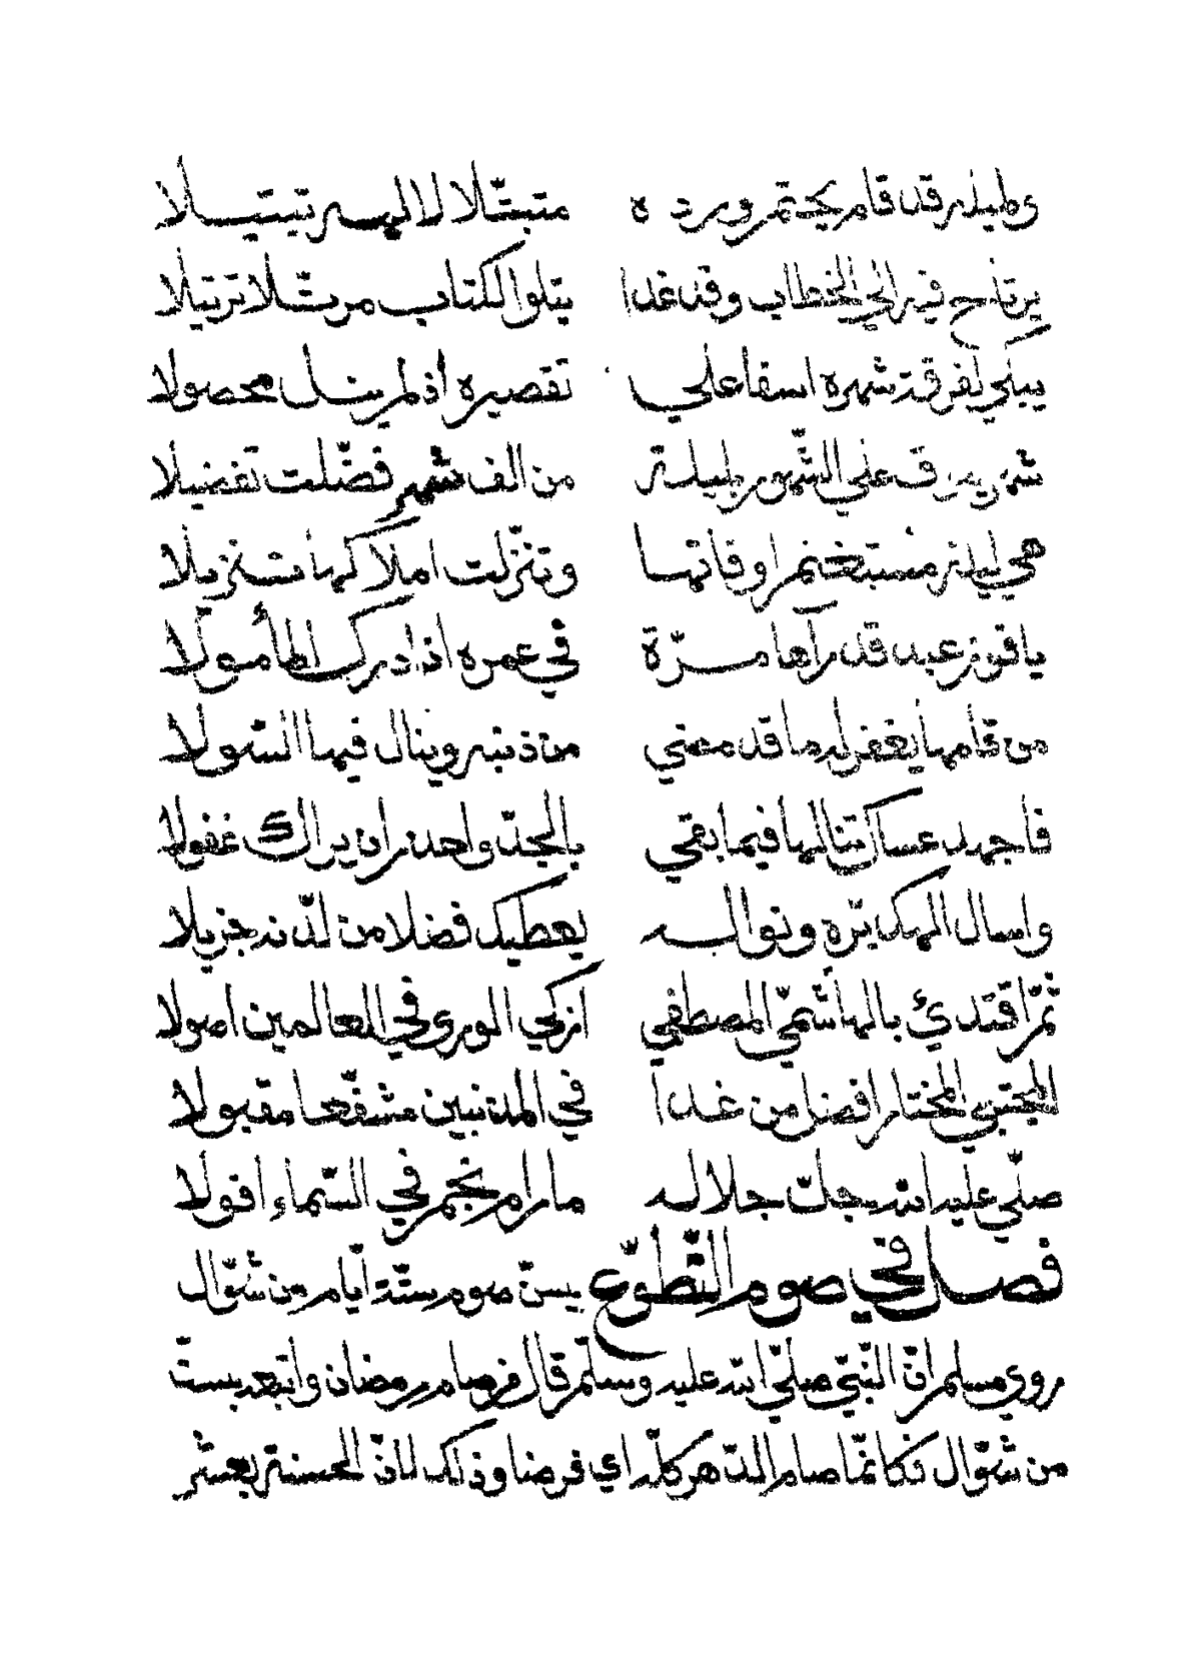 وليله قد قام يختم ورده متبتلا لالهه تبتيلا
يرتاح فيه الي الخطاب وقد غدا يتلوا الكتاب مرتّلا ترتيلا
يبكي لفرقة شهره اسفا علي تقصيره اذ لم ينل محصولا
شهر يشرف علي الشّهور بليلة من الف شهر فضّلت تفضيلا
هي ليلة مستغنم اوقاتها وتنزّلت املاكها تنزيلا
يا فوز عبد قد رآها مرّة في عمره اذ ادرك المأمولا
من قامها يغفر له ما قد مضي من ذنبه وينال فيها السّولا
فاجهد عساك تنالها فيما بقي بالجدّ واحذر ان يراك غفولا
واسال الهك برّه ونواله يعطيك فضلا من لدنه جزيلا
ثمّ اقتدئ بالهاشمّي المصطفي ازكي الوري في العالمين اصولا
المجتبي المختار افضل من غدا في المذنبين مشفّعا مقبولا
صلّي عليه الله جلّ جلاله ما رام نجم في السّماء افولا
فصل في صوم التّطوّع يسنّ صوم ستّة ايّام من شوّال
روي مسلم انّ النّبيّ صلّي الله عليه وسلّم قال من صام رمضان واتبعه بستّ
من شوّال فكانّما صام الدّهر كلّه اي فرضا وذلك لانّ الحسنة بعشر